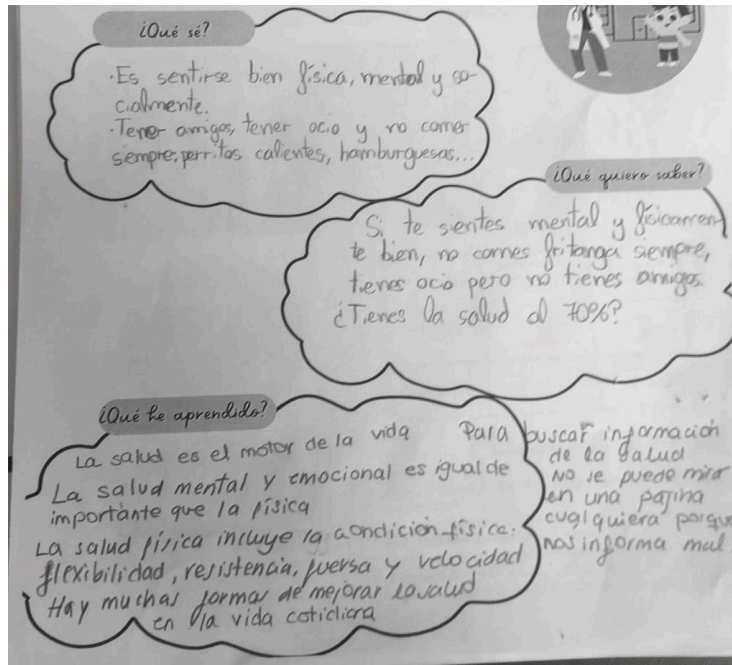 ¿Qué sé?
·Es sentirse bien física, mental y so-
cialmente.
·Tener amigos, tener ocio y no comer
siempre; perritos calientes, hamburguesas...
¿Qué quiero saber?
Si te sientes mental y físicamen-
te bien, no comes fritanga siempre,
tienes ocio pero no tienes amigos.
¿Tienes la salud al 70%?
¿Qué he aprendido?
La salud es el motor de la vida
La salud mental y emocional es igual de
importante que la física
La salud física incluye la condición física:
flexibilidad, resistencia, fuersa y velocidad
Hay muchas formas de mejorar la salud
en la vida cotidiana
Para buscar información
de la salud
No se puede mirar
en una pagina
cualquiera porque
nos informa mal.